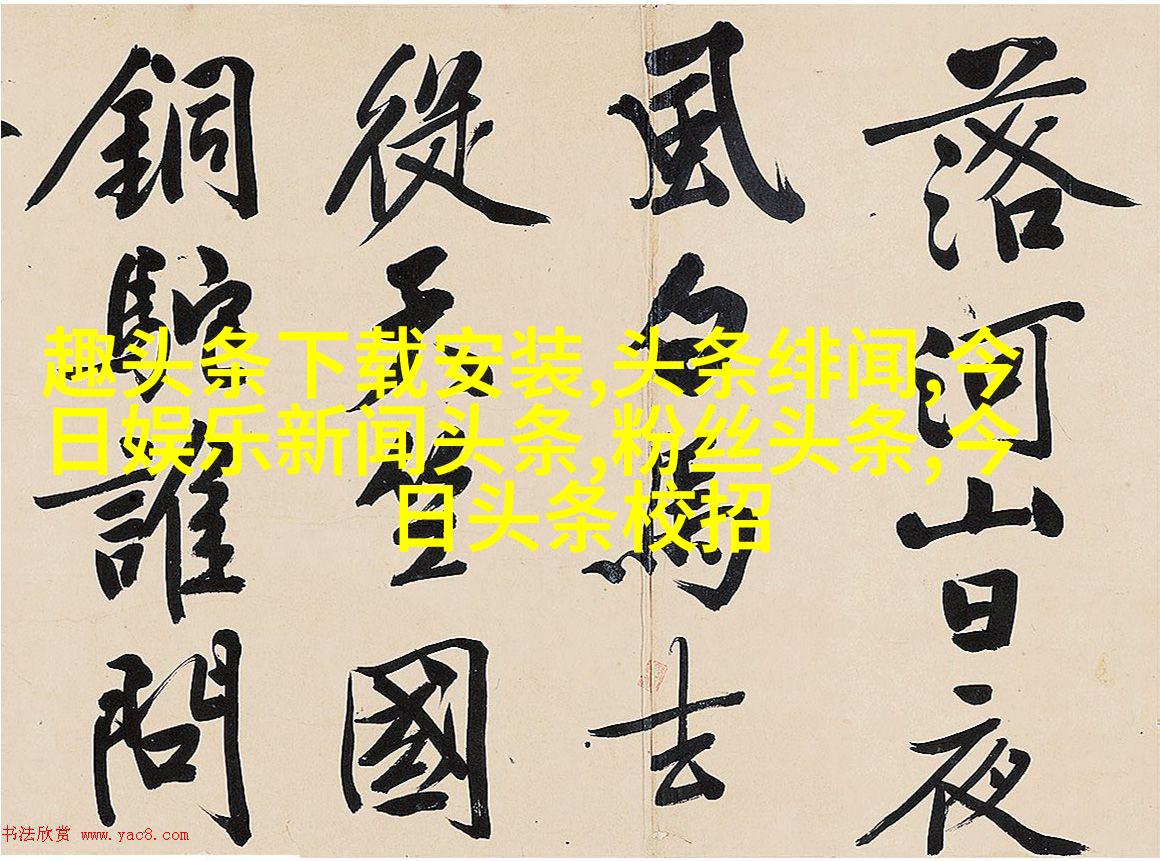 落河山日夜
風白馬去
從天竺國
銅駝誰問
趣头条下载安装,头条绯闻,今
日娱乐新闻头条,粉丝头条,今
日头条校招
书法欣赏 www.yac8.com